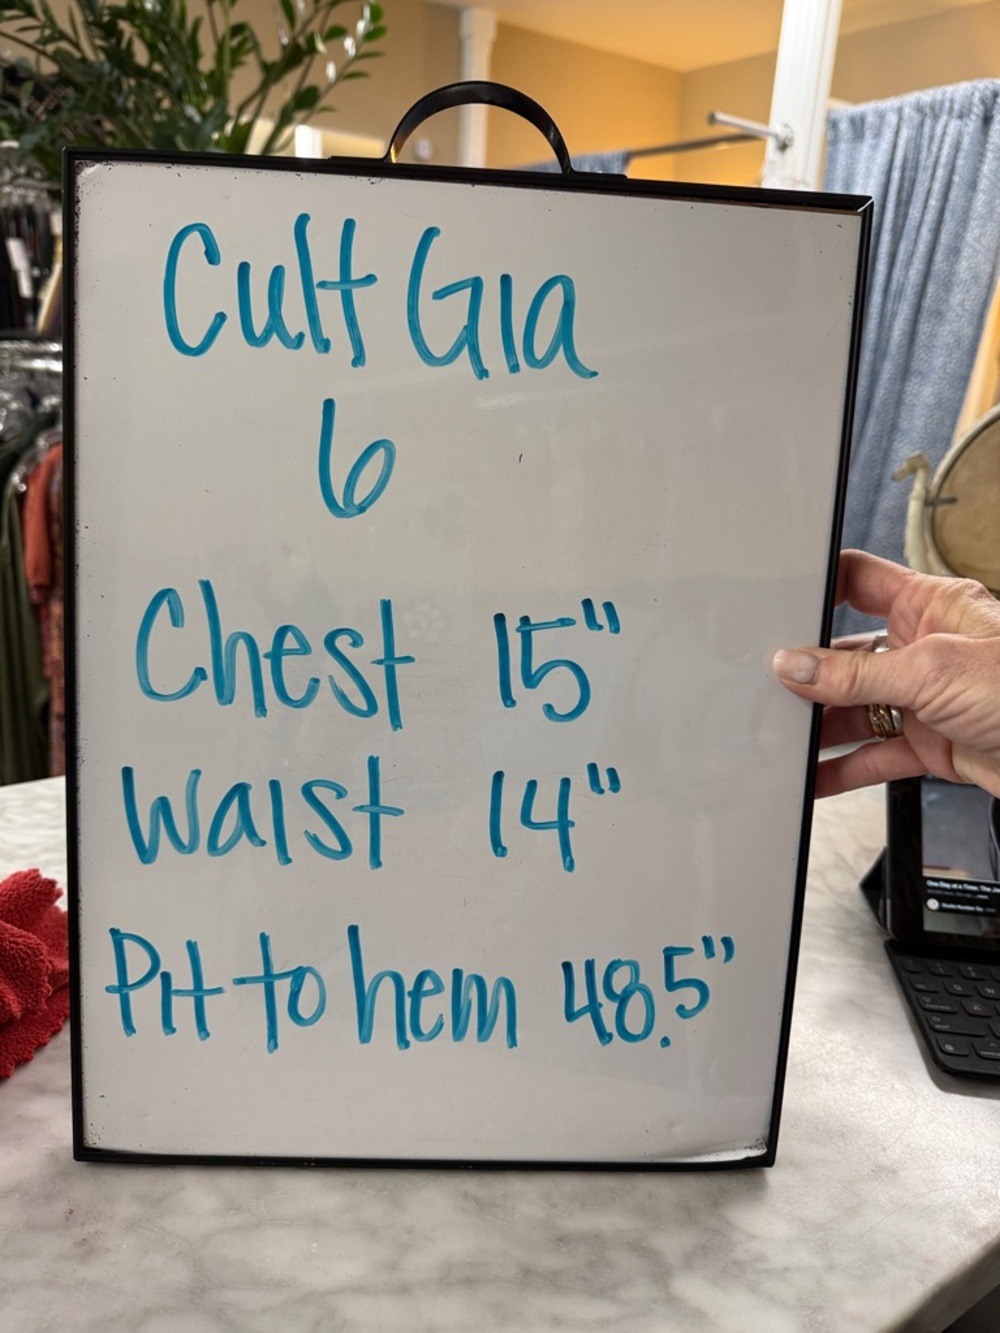 Cult Gia
6
Chest 15"
Waist 14"
Pit to hem 48.5"
One Day at a Time: The